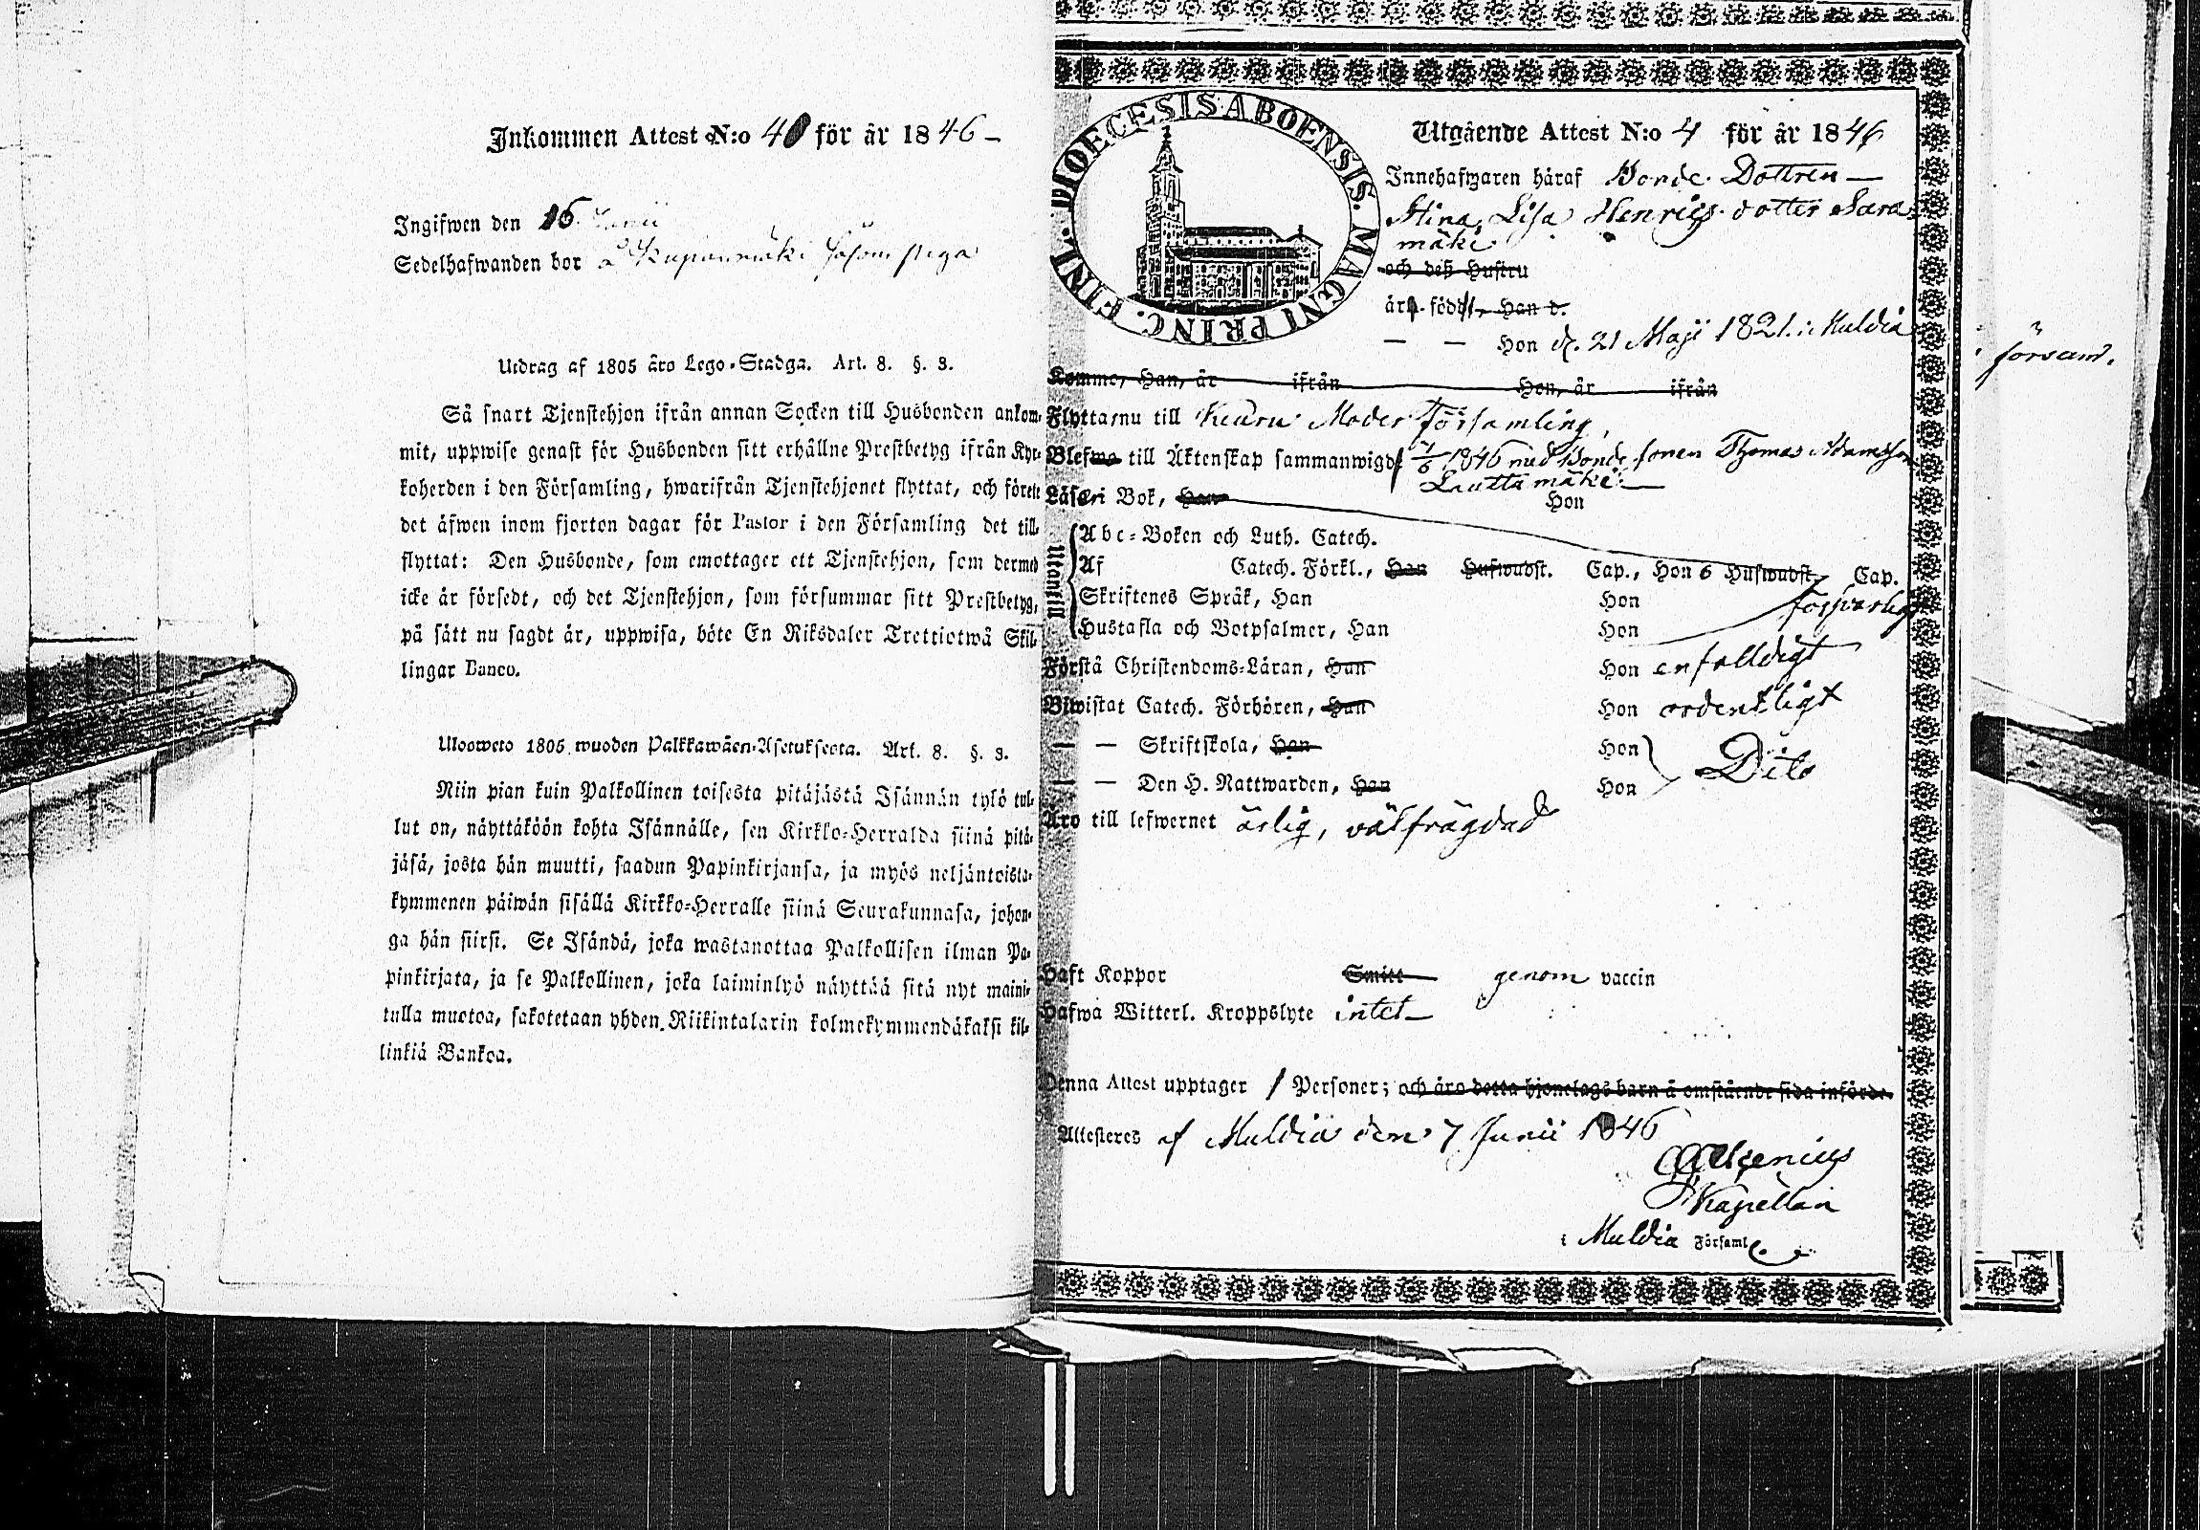 Inkommen Attest N:o 40 för år 1846
Ingifwen den 16 Junii
Sedelhafwanden bor å såsom piga
Utdrag af 1805 års Lego-Stadga. Art. 8. §. 3.
Så snart Tjenstehjon ifrån annan Socken till Husbonden ankom-
mit, uppwise genast för Husbonden sitt erhållne Prestbetyg ifrån Kyr-
koherden i den Församling, hwarifrån Tjenstehjonet flyttat, och förete
det äfwen inom fjorton dagar för Pastor i den Församling det till-
flyttat: Den Husbonde, som emottager ett Tjenstehjon, som dermed
icke är försedt, och det Tjenstehjon, som försummar sitt Prestbetyg,
på sätt nu sagdt är, uppwisa, böte En Riksdaler Trettiotwå Skil-
lingar Banco.
Ulosweto 1805 wuoden Palkkawäen-Asetuksesta. Art. 8. §. 3.
Niin pian kuin Palkollinen toisesta pitäjästä Isännän tykö tul-
lut on, näyttäköön kohta Isännälle, sen Kirkko-Herralda siinä pitä-
jäsä, josta hän muutti, saadun Papinkirjansa, ja myös neljäntoista-
kymmenen päiwän sisällä Kirkko-Herralle siinä Seurakunnasa, johon-
ga hän siirsi. Se Isändä, joka wastanottaa Palkollisen ilman Pa-
pinkirjata, ja se Palkollinen, joka laiminlyö näyttää sitä nyt maini-
tulla muotoa, sakotetaan yhden Riikintalarin kolmekymmendäkaksi kil-
linkiä Bankoa.
DIOECESIS ABOENSIS. MAGNI PRINC. FINL.
Utgående Attest N:o 4 för år 1846
Innehafwaren häraf Bonde Dottren
Stina Lisa Henrigsdotter Sara
mäki
och deß Hustru
är född, Han d.
— — Hon d. 21 Maji 1821 i Muldia
församl.
Komne, Han, år ifrån Hon, år ifrån
Flyttar nu till Keuru Moder församling,
Blefwo till Äktenskap sammanwigde 7/6 1846 med Bonde sonen Thomas Adamsson
Lauttamäki
Läser i Bok, Han Hon
Utantill
Abc-Boken och Luth. Catech.
Af Catech. Förkl., Han Hufwudst. Cap., Hon 6 Hufwudst. Cap.
Skriftenes Språk, Han Hon försvarligt
Hustafla och Botpsalmer, Han Hon
Förstå Christendoms-Läran, Han Hon enfalldigt
Biwistat Catech. Förhören, Han Hon ordentligt
— — Skriftskola, Han Hon Dito
— — Den H. Nattwarden, Han Hon
Äro till lefwernet ärlig, välfrägdad
Haft Koppor Smitt genom vaccin
Hafwa Witterl. Kroppslyte intet
Denna Attest upptager 1 Personer; och äro detta hjonelags barn å omstående sida införde.
Attesteres af Muldia den 7 Junii 1846
Kapellan
i Muldia Församl.